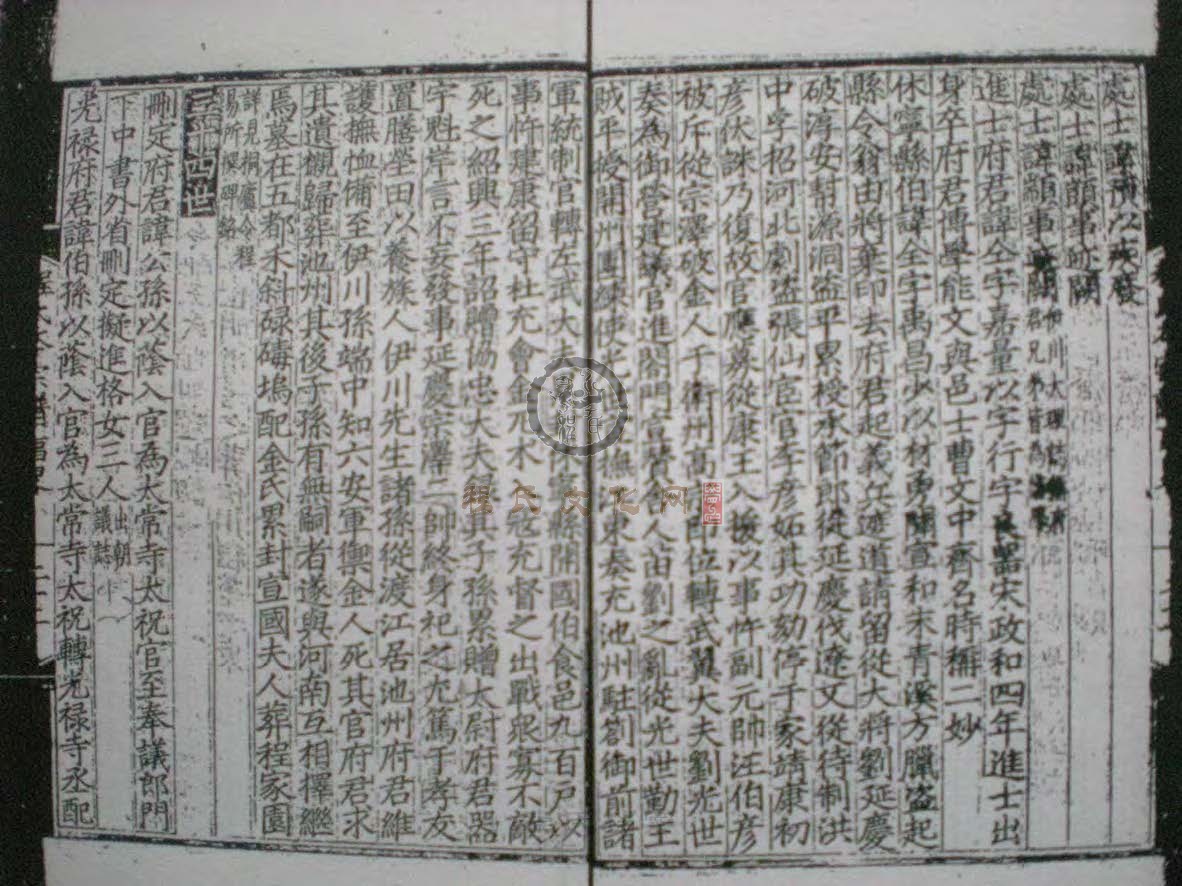 處士諱
處士諱萌事跡闕
處士諱顯事
進士府君諱仝字嘉量小字行字宋政和四年進士出
身卒府君博學能文與邑士曹文中齊名時稱二妙
休寧縣伯諱全字禹昌少以材勇聞宣和末青溪方臘盜起
縣令翁由將棄印去府君起義兵遮道請留從大將劉延慶
破淳安幇源洞盜平累授承節郎從延慶伐遼又從待制洪
中孚招河北劇盜張仙宦官李彦妬其功劾停于家靖康初
彦伏誅乃復故官應募從康王入援以事忤副元帥汪伯彦
被斥從宗澤破金人于衛州高即位轉武翼大夫劉光世
奏為御營建議官進閤門宣贊舍人苗劉之亂從光世勤王
賊平授開州團練使光撫東奏充池州駐劄御前諸
軍統制官轉左武大夫休寧縣開國伯食邑九百戸以
事忤建康留守杜充會金兀术冦充督之出戰眾寡不敵
死之紹興三年詔贈協忠大夫録其子孫累贈太尉府君器
宇魁岸言不妄發事延慶宗澤二帥終身祀之尤篤于孝友
置膳塋田以養族人伊川先生諸孫從渡江居池州府君維
護撫恤備至伊川孫端中知六安軍禦金人死其官府君求
其遺櫬歸葬池州其後子孫有無嗣者遂與河南互相擇繼
焉墓在五都禾斜碌磚塢配金氏累封宣國夫人葬程家園
詳見桐廬令程
易所撰碑銘
三十四世
刪定府君諱公孫以蔭入官為太常寺太祝官至奉議郎門
下中書外省刪定擬進格女二人出朝議誌
光禄府君諱伯孫以蔭入官為太常寺太祝轉光禄寺丞配
程氏文化网